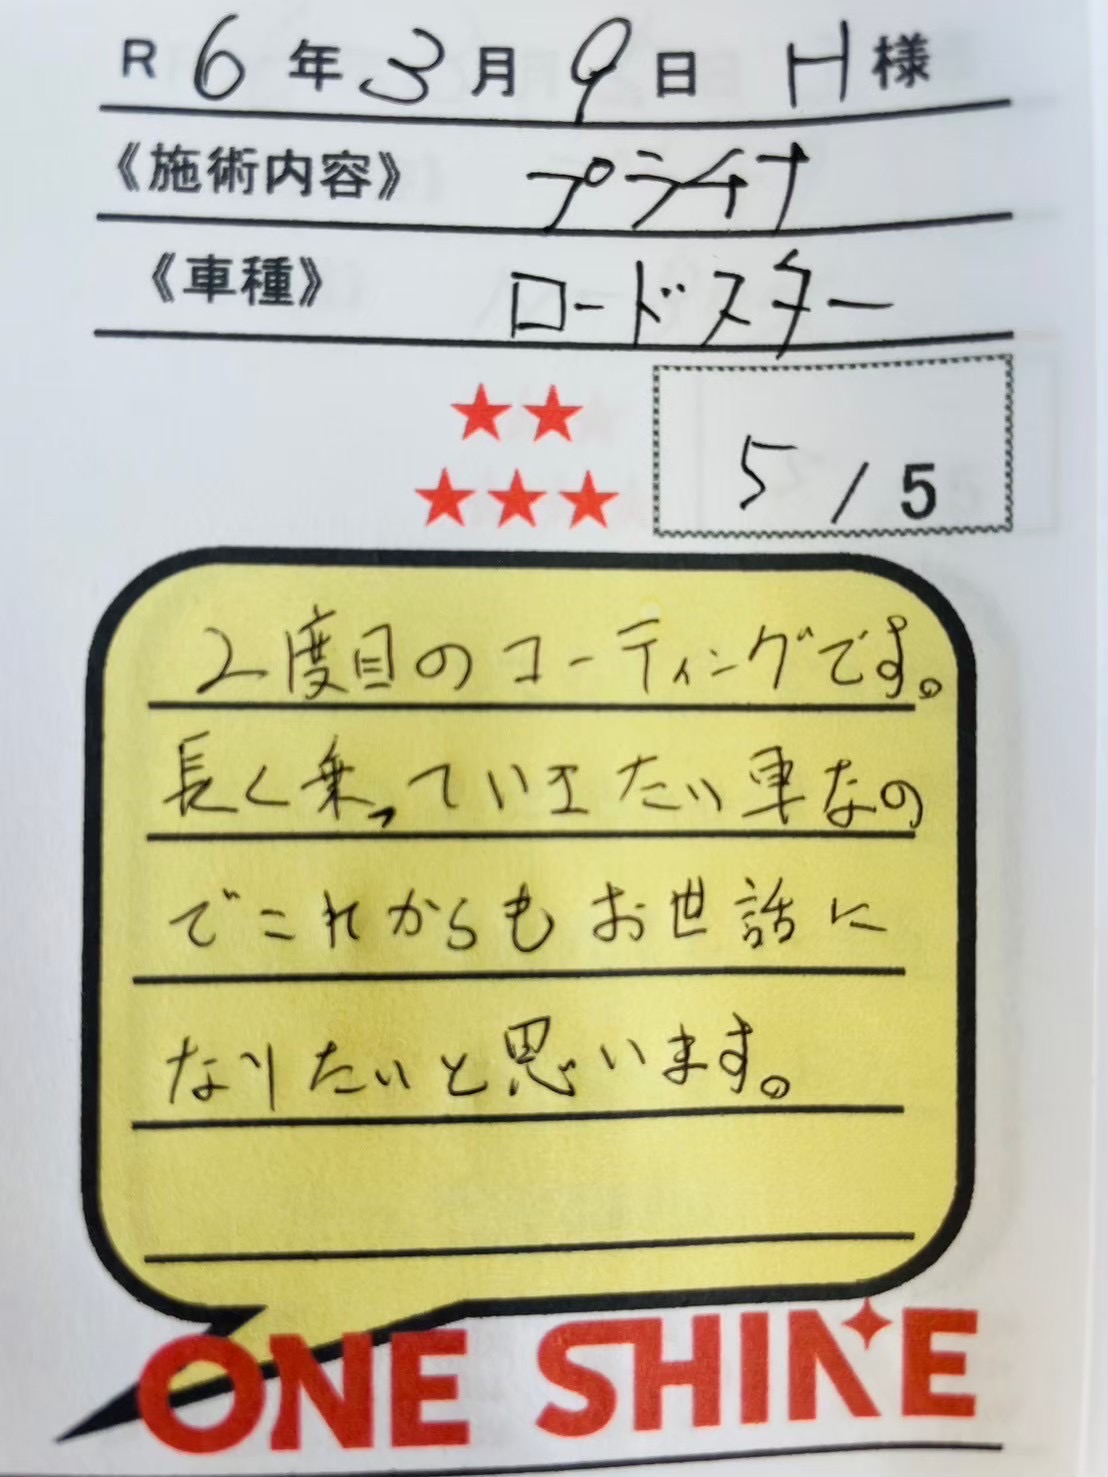 R 6年3月9日 H様
《施術内容》 プラチナ
《車種》 ロードスター
★★
★★★ 5/5
2度目のコーティングです。
長く乗っていきたい車なの
でこれからもお世話に
なりたいと思います。
ONE SHINE